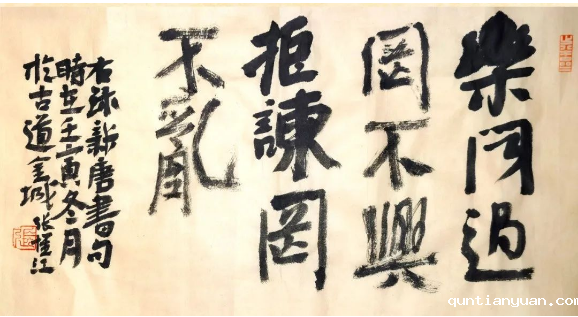 樂闻過
罔不興
拒諫罔
不亂
右录新唐書句
時在壬寅冬月
於古道金城
quntianyuan.com